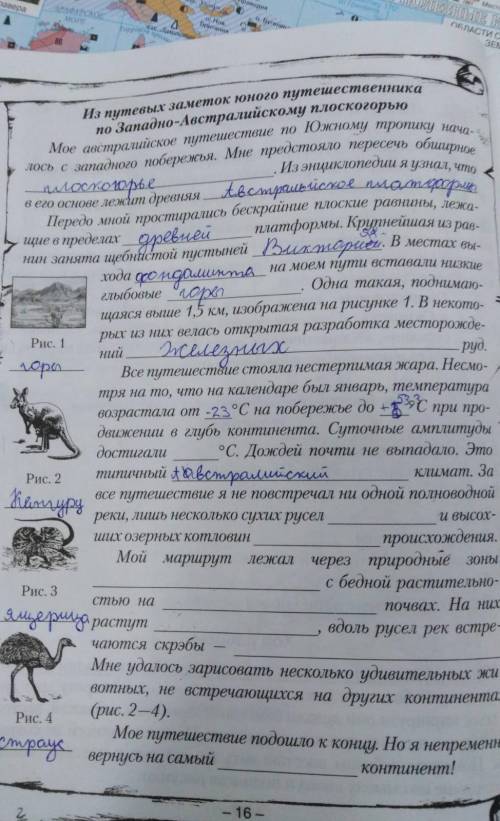 Из путевых заметок юного путешественника
по Западно-Австралийскому плоскогорью
Мое австралийское путешествие по Южному тропику нача-
лось с западного побережья. Мне предстояло пересечь обширное
плоскогорье . Из энциклопедии я узнал, что
в его основе лежит древняя Австралийская платформа
Передо мной простирались бескрайние плоские равнины, лежа-
щие в пределах древней платформы. Крупнейшая из рав-
нин занята щебнистой пустыней Виктория. В местах вы-
хода фондаминта на моем пути вставали низкие
глыбовые горы . Одна такая, поднимаю-
щаяся выше 1,5 км, изображена на рисунке 1. В некото-
рых из них велась открытая разработка месторожде-
ний Железных руд.
Рис. 1
горы
Все путешествие стояла нестерпимая жара. Несмо-
тря на то, что на календаре был январь, температура
возрастала от -23 °C на побережье до +53,3 °C при про-
движении в глубь континента. Суточные амплитуды
достигали °C. Дождей почти не выпадало. Это
типичный австралийский климат. За
все путешествие я не повстречал ни одной полноводной
реки, лишь несколько сухих русел и высох-
ших озерных котловин происхождения.
Рис. 2
Кенгуру
Мой маршрут лежал через природные зоны
с бедной растительно-
стью на почвах. На них
растут , вдоль русел рек встре-
чаются скрэбы –
Рис. 3
ящерица
Мне удалось зарисовать несколько удивительных жи
вотных, не встречающихся на других континента
(рис. 2–4).
Рис. 4
страус
Мое путешествие подошло к концу. Но я непременн
вернусь на самый континент!
– 16 –